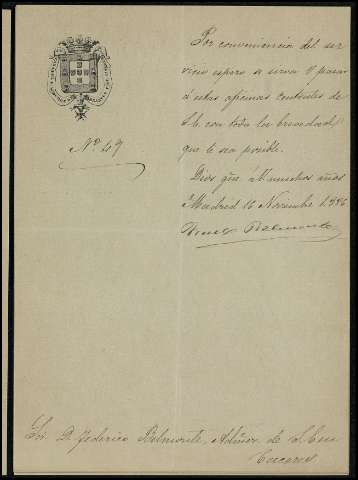 Nº 49
Por conveniencia del ser
vicio espero se sirva V pasar
á estas oficinas
con toda la brevedad
que le sea posible.
Dios gũe á V muchos años
Madrid 16 Novembre 1886
Belmonte
Sor D. Federico Belmonte, Admor de S. Ema
Caceres